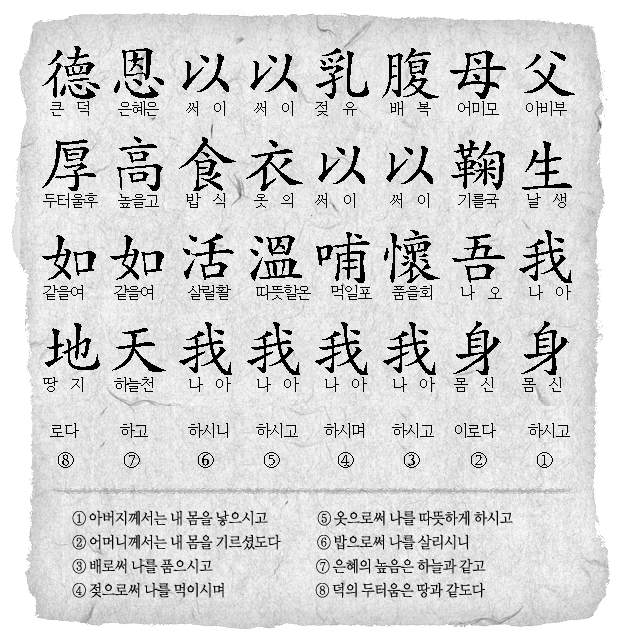 父 아비부 生 날 생 我 나 아 身 몸 신 하시고 ①
母 어미모 鞠 기를국 吾 나 오 身 몸 신 이로다 ②
腹 배 복 以 써 이 懷 품을회 我 나 아 하시고 ③
乳 젖 유 以 써 이 哺 먹일포 我 나 아 하시며 ④
以 써 이 衣 옷 의 溫 따뜻할온 我 나 아 하시고 ⑤
以 써 이 食 밥 식 活 살릴활 我 나 아 하시니 ⑥
恩 은혜은 高 높을고 如 같을여 天 하늘천 하고 ⑦
德 큰 덕 厚 두터울후 如 같을여 地 땅 지 로다 ⑧
① 아버지께서는 내 몸을 낳으시고
② 어머니께서는 내 몸을 기르셨도다
③ 배로써 나를 품으시고
④ 젖으로써 나를 먹이시며
⑤ 옷으로써 나를 따뜻하게 하시고
⑥ 밥으로써 나를 살리시니
⑦ 은혜의 높음은 하늘과 같고
⑧ 덕의 두터움은 땅과 같도다